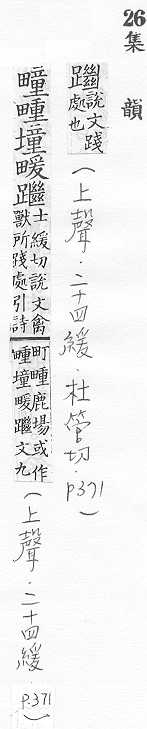 26集 韻
躖 說文踐處也 (上聲.二十四緩.杜管切.p371)
疃畽墥暖躖 土緩切說文禽獸所踐處引詩町畽鹿場或作畽墥暖躖文九 (上聲.二十四緩.p.371)